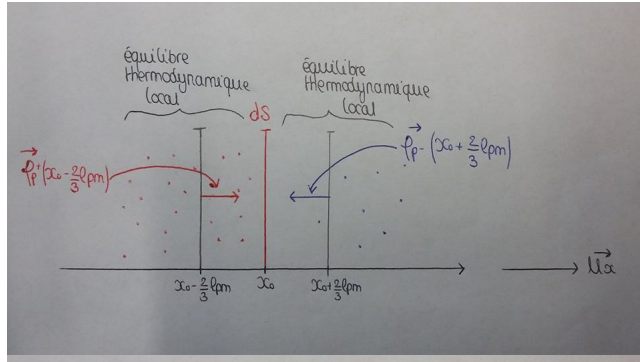 équilibre
thermodynamique
local
équilibre
thermodynamique
local
dS
φp+(x₀-2/3lpm)
φp-(x₀+2/3lpm)
x₀-2/3lpm
x₀
x₀+2/3lpm
Ux